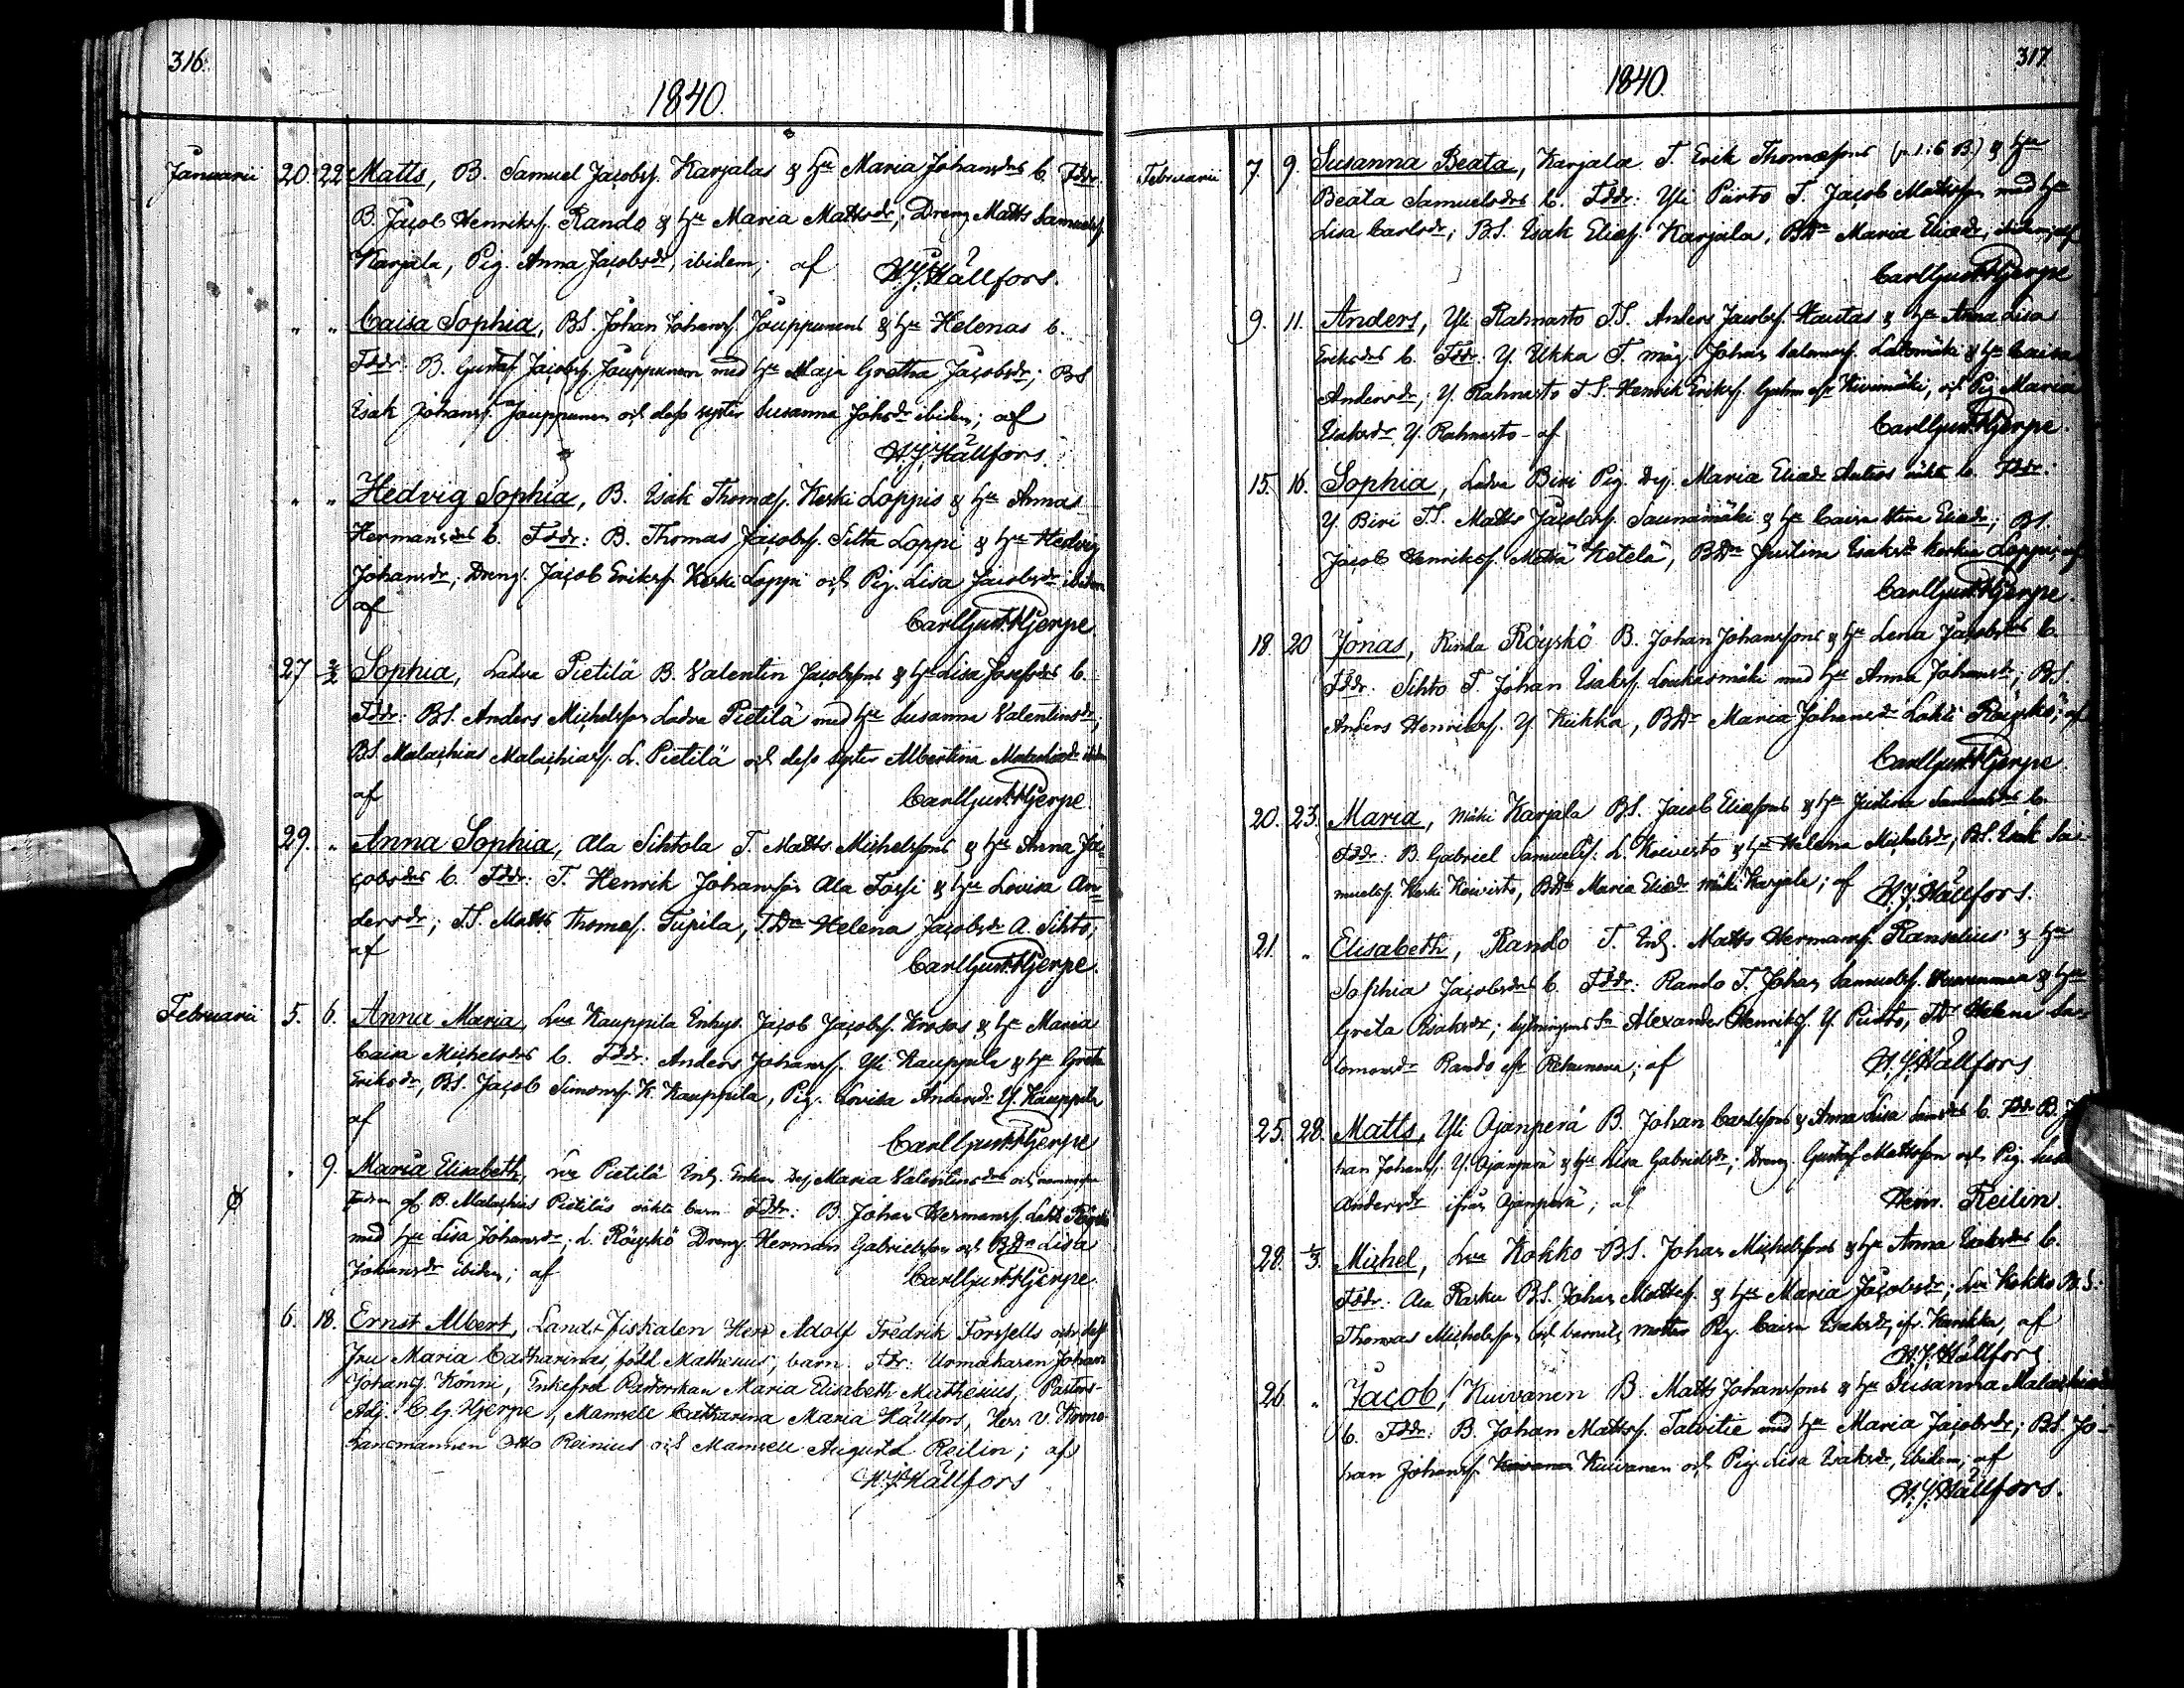 316.
1840.
Januarii 20. 22. Matts, B. Samuel Jacobss. Karjalas & Hu Maria Johansdrs b. Fddr:
B. Jacob Henrikss. Rando & Hu Maria Mattsdr; Dreng Matts Samuelss.
Karjala, Pig. Anna Jacobsdr, ibidem; af H.J. Hällfors.
" " Caisa Sophia, BS. Johan Johanss. Jouppunens & Hu Helenas b.
Fddr: B. Gustaf Jacobss. Jouppunen med Hu Maja Gretha Jacobsdr; BS
Isak Johanss. Jouppunen och dess syster Susanna Johsdr ibidem; af
H.J. Hällfors.
" " Hedvig Sophia, B. Isak Thomæss. Keski Loppis & Hu Annas
Hermansdrs b. Fddr: B. Thomas Jacobss. Silta Loppi & Hu Hedvig
Johansdr; Dreng. Jacob Erikss. Keski Loppi och Pig. Lisa Jacobsdr ibidem
af Carl Gust. Hjerpe.
27 2/2 Sophia, Ladva Pietilä B. Valentin Jacobssons & Hu Lisa Josefsdrs b.
Fddr: BS. Anders Michelsson Ladva Pietilä med Hu Susanna Valentinsdr;
BS. Malachias Malachiass. L. Pietilä och dess syster Albertina Malachiædr ibidem
af Carl Gust. Hjerpe.
29. " Anna Sophia, Ala Sihtola T. Matts Michelssons & Hu Anna Ja-
cobsdrs b. Fddr: T. Henrik Johansson Ala Fossi & Hu Lovisa An-
dersdr; TS. Matts Thomæss. Tupila, TDr Helena Jacobsdr A. Sihto;
af Carl Gust. Hjerpe.
Februarii 5. 6. Anna Maria, Lva Kauppila Inhys. Jacob Jacobss. Krosas & Hu Maria
Caisa Michelsdrs b. Fddr: Anders Johanss. Yli Kauppila & Hu Greta
Eriksdr, BS. Jacob Simonss. K. Kauppila, Pig. Lovisa Andersdr Y. Kauppila
af
Carl Gust. Hjerpe
" 9. Maria Elisabeth, Lva Pietilä Inh. Enkan Dej Maria Valentinsdrs och
af B. Malachias Pietiläs oäkta barn Fddr: B. Johan Hermanss. Lahti Röyskö
med Hu Lisa Johansdr; L. Röyskö Dreng Herman Gabrielsson och BDr Lisa
Johansdr ibidem; af Carl Gust. Hjerpe
6. 18. Ernst Albert, Lands Fiskalen Herr Adolf Fredrik Forssells och dess
Fru Maria Catharinas, född Mathesius, barn. Fdr: Urmakaren Johan
Johanss. Könni, Enkefru Pastorskan Maria Elisabeth Mathesius, Pastors-
Adj. C.G. Hjerpe, Mamsell Catharina Maria Hällfors, Herr V. Krono
Länsmannen Otto Reinius och Mamsell Augusta Reilin; af
H.J. Hällfors
317
1840.
Februarii 7. 9. Susanna Beata, Karjala T. Erik Thomæssons (p. 1: 6 B.) & Hu
Beata Samuelsdrs b. Fddr: Yli Pürto T. Jacob Mattsson med Hu
Lisa Carlsdr; BS. Isak Eliæss. Karjala, BDr Maria Eliædr, ibidem; af
Carl Gust. Hjerpe
9. 11. Anders, Yli Rahnasto TS. Anders Jacobss. Hautas & Hu Anna Lisa
Eriksdrs b. Fddr: Y. Ukka T. måg. Johan Salomonss. Latomäki & Hu Caisa
Andersdr; Y. Rahnasto TS. Henrik Erikss. Kivimäki, och Pig Maria
Isaksdr Y. Rahnasto - af Carl Gust. Hjerpe.
15. 16. Sophia, Ladva Biri Pig. Dej. Maria Eliædr Anters oäkta b. Fddr:
Y. Biri TS. Matts Jacobss. Saunamäki & Hu Caisa Stina Eliædr; BS.
Jacob Henrikss. Mattä Ketelä, BDr Justina Isaksdr Keskei Loppi; af
Carl Gust. Hjerpe.
18. 20 Jonas, Rinda Röyskö B. Johan Johanssons & Hu Lena Jacobsdrs b.
Fddr: Sihto T. Johan Isakss. Loukasmäki med Hu Anna Johansdr; BS.
Anders Henrikss. Y. Kiikka, BDr Maria Johansdr Lahti Röyskö; af
Carl Gust. Hjerpe
20. 23. Maria, Mäki Karjala BS. Jacob Eliæssons & Hu Justina Samuelsdrs b.
Fddr: B. Gabriel Samuelss. L. Koivisto & Hu Helena Michelsdr; BS. Isak Sa-
muelss. Keski Koivisto, BDr Maria Eliædr Mäki Karjala; af H.J. Hällfors.
21. " Elisabeth, Rando T. Inh. Matts Hermanss. Ranselius' & Hu
Sophia Jacobsdrs b. Fddr: Rando T. Johan Samuelss. & Hu
Greta Isaksdr; Sytningsms Sn Alexander Henrikss. Y. Püirto, TDr Helena Sa-
lomonsdr Rando; af H.J. Hällfors
25. 28. Matts, Yli Ojanperä B. Johan Carlssons & Anna Lisa b. Fddr B. Jo-
han Johanss. Y. Ojanperä & Hu Lisa Gabrielsdr; Dreng. Gustaf Mattsson och Pig. Lisa
Andersdr ifrån Ojanperä; af Henr. Reilin.
28. 1/3. Michel, Lva Kokko BS. Johan Michelssons & Hu Anna Isaksdrs b.
Fddr: Ala Rasku BS. Johan Mattss. & Hu Maria Jacobsdr; Lva Kokko BS:
Thomas Michelsson och barnets moster Pig. Caisa Isaksdr, ifr. Karikka, af
H.J. Hällfors
26. " Jacob, Kuivanen B. Matts Johanssons & Hu Susanna Malachiædrs
b. Fddr: B. Johan Mattss. Talvitie med Hu Maria Jacobsdr; BS. Jo-
han Johanss. Kuivanen och Pig. Lisa Isaksdr, ibidem; af
H.J. Hällfors.